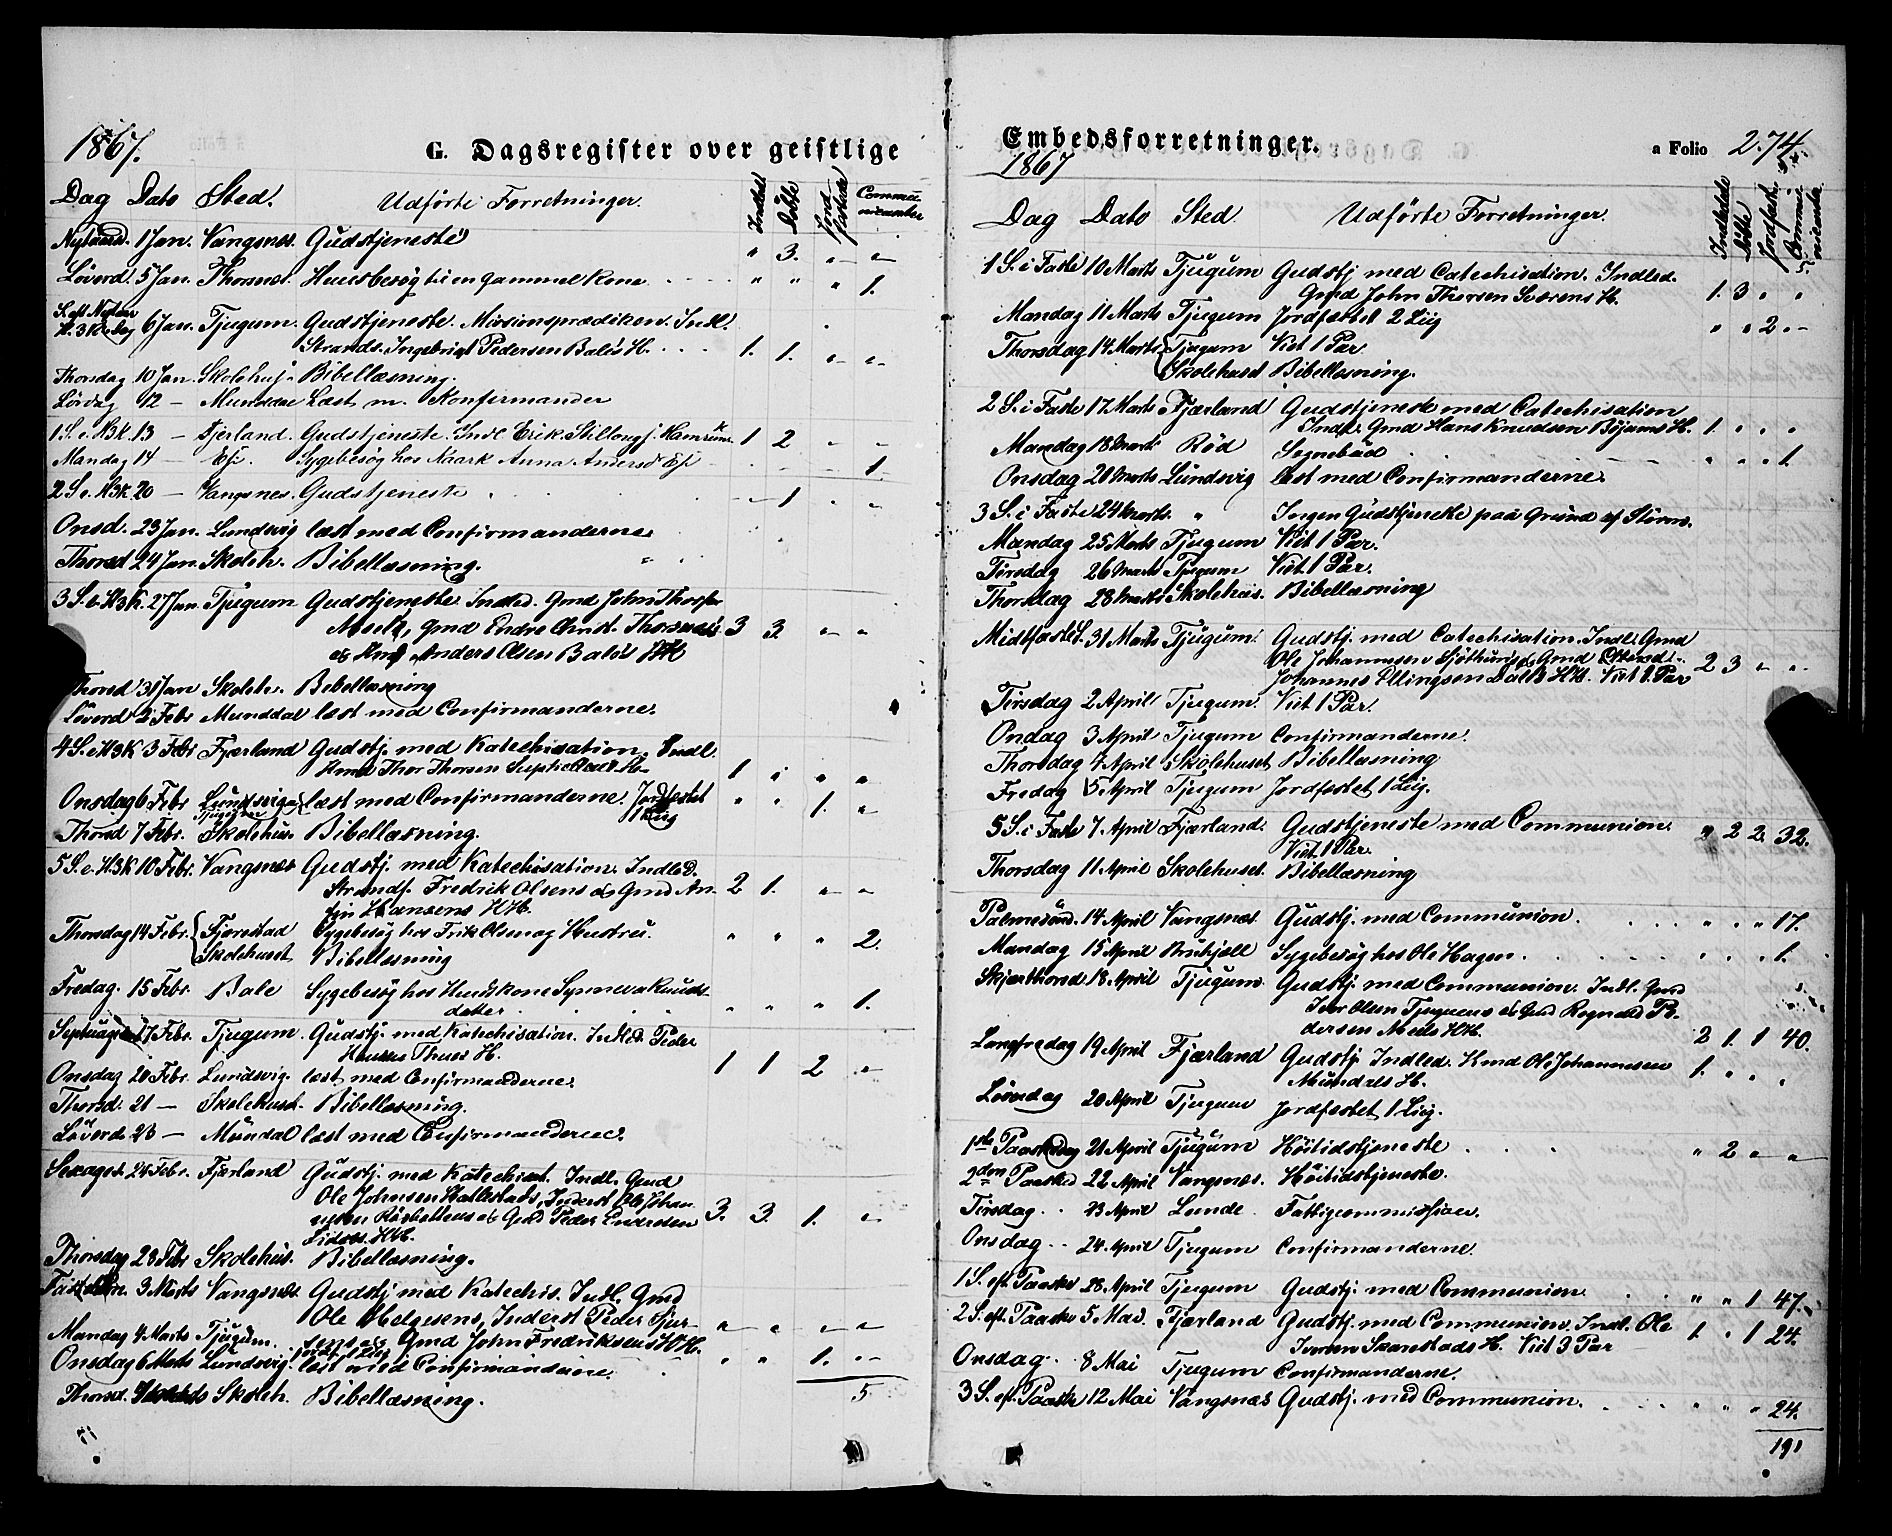 1867.
G. Dagsregister over geistlige
Dag Dato Sted. Udførte Forretninger. Indled. Døbte Jordfæstede Communicanter
Nytaarsd. 1 Jan. Vangsnes. Gudstjeneste " 3. " "
Løverd 5 Jan. Thorsnes. Huusbesøg til en gammel Kone " " " 1.
S. eft. Nytaar
H. 3 K. Dag 6 Jan. Tjugum. Gudstjeneste. Missionsprædiken. Indl.
Strands. Ingebrigt Pedersen Bales H. 1. 1. " "
Thorsdag 10 Jan. Skolehus. Bibellæsning.
Lørdag 12 — Munddal Læst m. Konfirmander
1 S. e. H3K. 13 — Fjerland. Gudstjeneste. Indl Erik 1 2 " "
Mandag 14 — Sygebesøg hos Anna 1
2 S. e. H3K. 20 — Vangsnes. Gudstjeneste 1 " "
Onsd. 23 Jan. Lundsvig læst med Confirmanderne.
Thorsd 24 Jan. Skoleh. Bibellæsning.
3 S. e. H3K. 27 Jan. Tjugum Gudstjeneste. Indled. Gmd John Thorsen
Gmd Endre Christ. Thorsnæs 3 3. " "
og Kmd Anders Olsen Bales HH
Thorsd 31 Jan Skoleh. Bibellæsning
Løverd 2 Febr Munddal læst med Confirmanderne.
4 S. e H3K 3 Febr Fjærland Gudstj. med Katechisation. Indl.
Thor Thorsen H. 1 1 " "
Onsdag 6 Febr Lundsvig læst med Confirmanderne. Jordfæstet " " 1. "
Tjugum 1 Liig
Thorsd 7 Febr. Skolehus. Bibellæsning.
5 S. e. H3K 10 Febr. Vangsnæs Gudstj. med Katechisation. Indled.
Strands. Fredrik Olsens og Gmd An- 2 1. " "
fin Hansens HH.
Thorsdag 14 Febr. Fjærestad Sygebesøg hos Erik Olsen og Hustru. " " " 2.
Skolehuset Bibellæsning
Fredag. 15 Febr. Bale Sygebesøg hos Huuskone Synneva Knuds-
datter " " " 1.
Septuages 17 Febr. Tjugum. Gudstj. med Katechisation. Indled Peder
Thues H. 1 1 2 "
Onsdag 20 Febr. Lundsvig. læst med Confirmanderne.
Thorsd. 21 — Skolehust. Bibellæsning.
Løverd 23 — Mundal læst med Confirmanderne.
Sexages. 24 Febr. Fjærland Gudstj. med Katechisat. Indl. Gmd
Ole Johnsen Inderst Ole Johan-
nesen og Gmd Peder Endresen 3. 3. 1. "
HH.
Thorsdag 28 Febr Skolehus. Bibellæsning.
3 Marts Vangsnæs Gudstj med Katechis. Indl. Gmd
Ole Helgesens, Inderst Peder Sjur-
sens og Gmd John Fredriksens HH. " " " "
Mandag 4 Marts Tjugum. 1 Liig
Onsdag 6 Marts Lundsvig. læst med Confirmanderne. " " 1. "
Thorsd. Skoleh. Bibellæsning. 5
Embedsforretninger.
1867
a Folio 274.
Dag Dato Sted. Udførte Forretninger. Indledede Døbte Jordfæst. Communicanter
1 S. i Faste 10 Marts Tjugum Gudstj med Catechisation. Indled.
Gmd John Thorsen Sværens H. 1. 3 " "
Mandag 11 Marts Tjugum Jordfæstet 2 Liig " " 2 "
Thorsdag 14 Marts Tjugum Viet 1 Par
Skolehuset Bibellæsning.
2 S. i Faste 17 Marts Fjærland Gudstjeneste med Catechisation
Indl. Gmd Hans Knudsen Bøjums H. 1. " " "
Mandag 18 Marts Rød Sognebud " " " 1.
Onsdag 20 Marts Lundsvig læst med Confirmanderne.
3 S. i Faste 24 Marts. " Ingen Gudstjeneste paa Grund af Storm.
Mandag 25 Marts Tjugum Viet 1 Par.
Tirsdag 26 Marts Tjugum Viet 1 Par.
Thorsdag 28 Marts Skolehus. Bibellæsning
Midtfaste S. 31 Marts Tjugum. Gudstj. med Catechisation. Indl. Gmd
Ole Johannesen og Gmd
Johannes Ellingsen HH. Viet 1 Par 2 3 " "
Tirsdag 2 April Tjugum. Viet 1 Par.
Ondag 3 April Tjugum Confirmanderne.
Thorsdag 4 April Skolehuset Bibellæsning
Fredag 5 April Tjugum Jordfæstet 1 Liig.
5 S. i Faste 7 April Fjærland. Gudstjeneste med Communion. " 2 2 32.
Viet 1 Par.
Thorsdag 11 April Skolehuset. Bibellæsning
Palmesønd. 14 April Vangsnæs Gudstj. med Communion. " " " 17.
Mandag 15 April Sygebesøg hos Ole Hagen. " " " 1.
Skjærthorsd 18 April Tjugum Gudstj. med Communion. Indl. Gmd
Iver Olsen Tjugums og Gmd Pe-
dersen HH. 2 1. 1 40.
Langfredag 19 April Fjærland Gudstj Indled. Kmd Ole Johannesen
Mundals H. 1. " " "
Løverdag 20 April Tjugum Jordfæstet 1 Liig.
1ste Paaskedag 21 April Tjugum Høitidstjeneste " 2 " "
2den Paasked 22 April Vangsnæs. Høitidstjeneste.
Tirsdag 23 April Lunde. Fattigcommission.
Onsdag 24 April Tjugum Confirmanderne.
1 S. eft. Paaske 28 April Tjugum Gudstj. med Communion " " 1 47.
2 S. eft. Paaske 5 Mai. Fjærland Gudstj. med Communion. Indl. Ole 1. " 1 24.
Iversen H. Viet 3 Par
Onsdag 8 Mai Tjugum Confirmanderne.
3 S. eft. Paaske 12 Mai Vangsnæs Gudstj. med Communion. " " " 24.
191